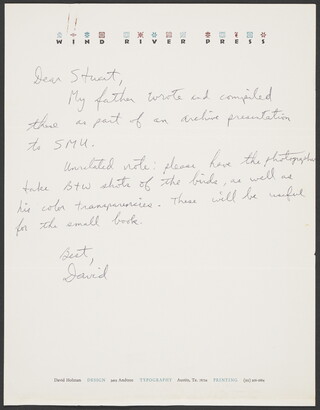 WIND RIVER PRESS
Dear Stuart,
My father wrote and compiled
these as part of an archive presentation
to SMU.
Unrelated note: please have the photographer
take B+W shots of the birds, as well as
his color transparencies. These will be useful
for the small book.
Best,
David
David Holman DESIGN Andrews TYPOGRAPHY Austin, Tx. PRINTING